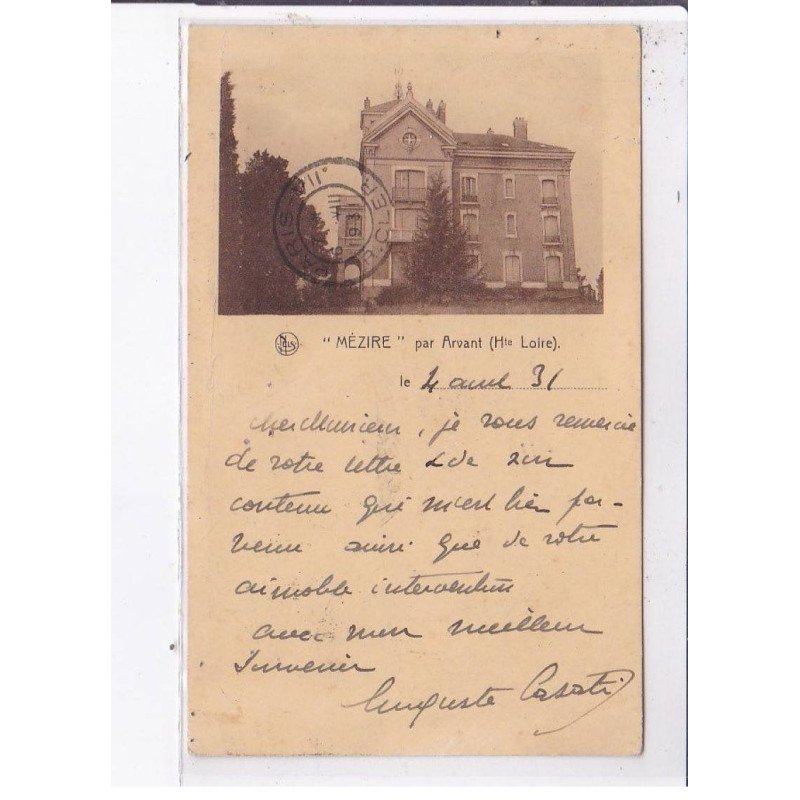 PARIS-VII
R. CLER
193
NELS
" MÉZIRE " par Arvant (Hte Loire).
le 4 avril 31
Cher Monsieur, je vous remercie
de votre lettre & de son
contenu qui m'est bien par-
venu ainsi que de votre
aimable intervention
avec mon meilleur
Souvenir
Auguste Casati